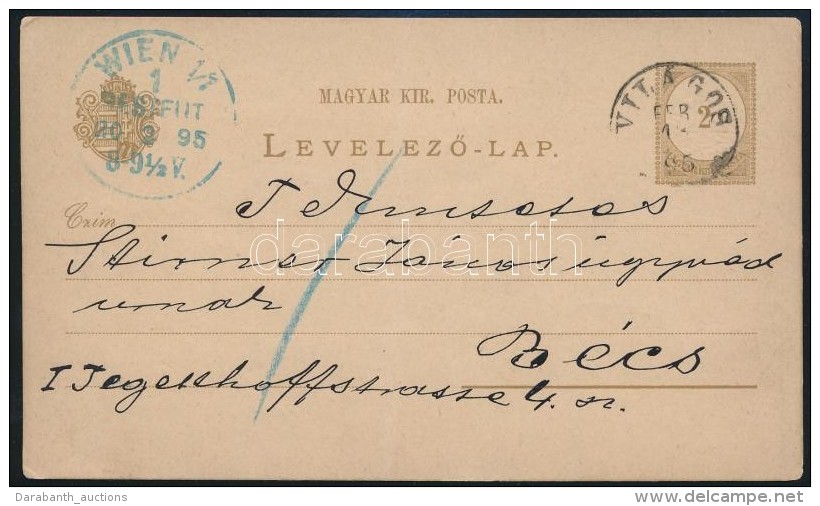 WIEN 1/1
1
BESTELLT
10. 2 95
8-9½V.
MAGYAR KIR. POSTA.
LEVELEZŐ-LAP.
VILÁGOS
FEB
2
Czim
T
Stirner János ügyvéd
urnak
Bécs
I Tegetthoffstrasse 4. sz.
darabanth
Darabanth_auctions
www.delcampe.net